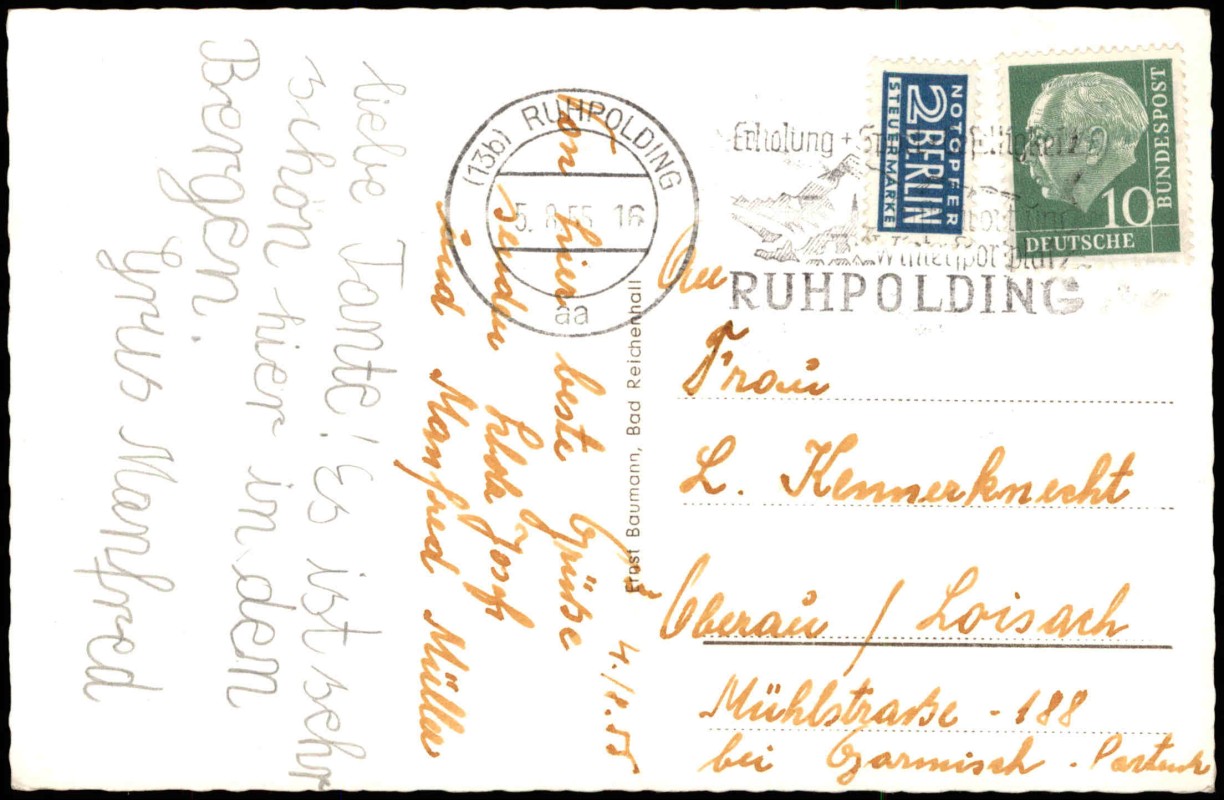 liebe Tante! Es ist sehr
schön hier in den
Bergen.
Manfred
4./8.55
Von hier beste Grüße
senden
und Manfred Müller
Ernst Baumann, Bad Reichenhall
(13b) RUHPOLDING
5.8.55 16
aa
Erholung +
RUHPOLDING
NOTOPFER
2 BERLIN
STEUERMARKE
BUNDESPOST
10
DEUTSCHE
Frau
L. Kennerknecht
Oberau / Loisach
Mühlstraße - 188
bei Garmisch - Partenk